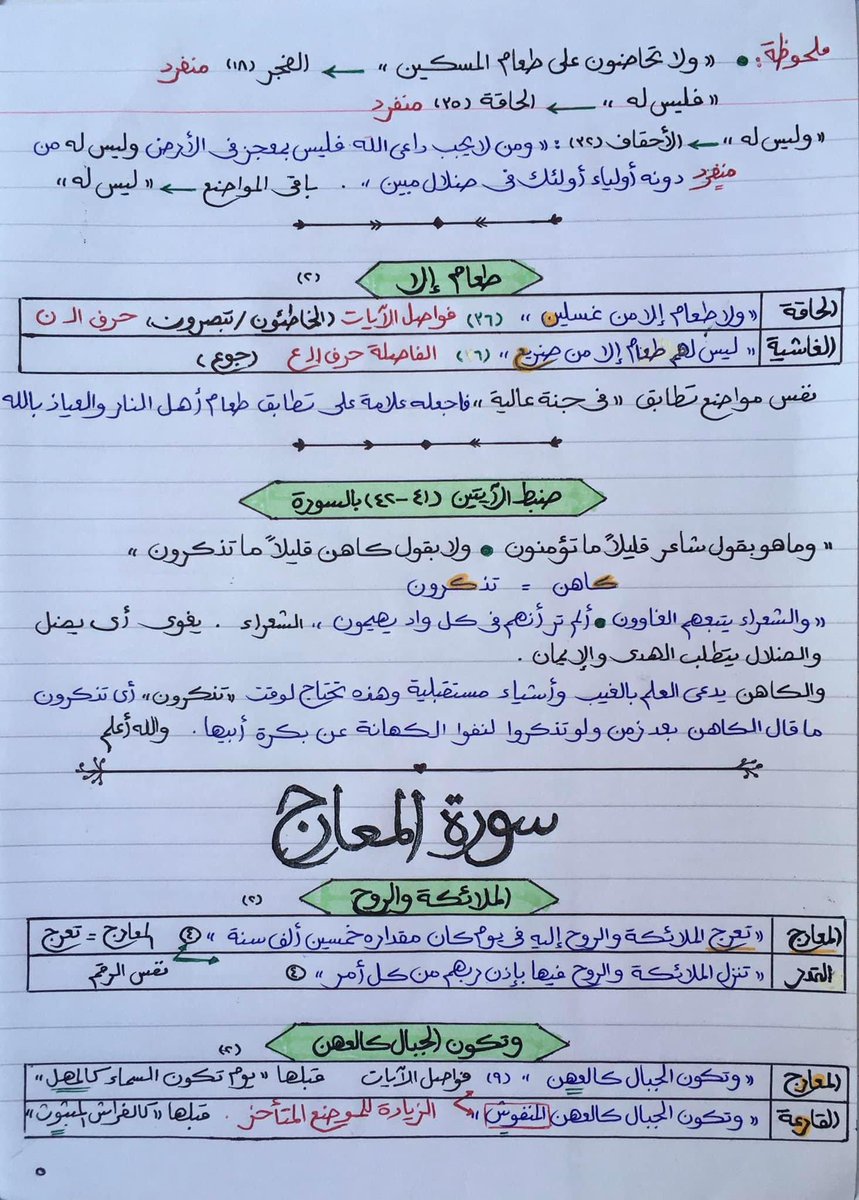 ملحوظة: • « ولا تحاضون على طعام المسكين » ← الفجر (١٨) منفرد
« فليس له » ← الحاقة (٣٥) منفرد
« وليس له » ← الأحقاف (٣٢): « ومن لا يجب داعى الله فليس بمعجز فى الأرض وليس له من
منفرد دونه أولياء أولئك فى ضلال مبين » . باقى المواضع ← « ليس له »
طعام إلا (٢)
الحاقة « ولا طعام إلا من غسلين » (٣٦) فواصل الآيات (الخاطئون / تبصرون) حرف الـ ن
الغاشية « ليس لهم طعام إلا من ضريع » (٦) الفاصلة حرف الـ ع (جوع)
نفس مواضع تطابق « فى جنة عالية » فاجعله علامة على تطابق طعام أهل النار والعياذ بالله
ضبط الآيتين (٤١-٤٢) بالسورة
« وما هو بقول شاعر قليلاً ما تؤمنون • ولا بقول كاهن قليلاً ما تذكرون »
كاهن = تذكرون
« والشعراء يتبعهم الغاوون • ألم تر أنهم فى كل واد يهيمون » الشعراء . يغوى أى يضل
والضلال يتطلب الهدى والإيمان .
والكاهن يدعى العلم بالغيب وأشياء مستقبلية وهذه تحتاج لوقت « تذكرون » أى تذكرون
ما قال الكاهن بعد زمن ولو تذكروا لنفوا الكهانة عن بكرة أبيها . والله أعلم
سورة المعارج
الملائكة والروح (٢)
المعارج « تعرج الملائكة والروح إليه فى يوم كان مقداره خمسين ألف سنة » ④ المعارج = تعرج
القدر « تنزل الملائكة والروح فيها بإذن ربهم من كل أمر » ④ نفس الرقم
وتكون الجبال كالعهن (٢)
المعارج « وتكون الجبال كالعهن » (٩) فواصل الآيات قبلها « يوم تكون السماء كالمهل »
القارعة « وتكون الجبال كالعهن المنفوش » الزيادة للموضع المتأخر . قبلها « كالفراش المبثوث »
٥